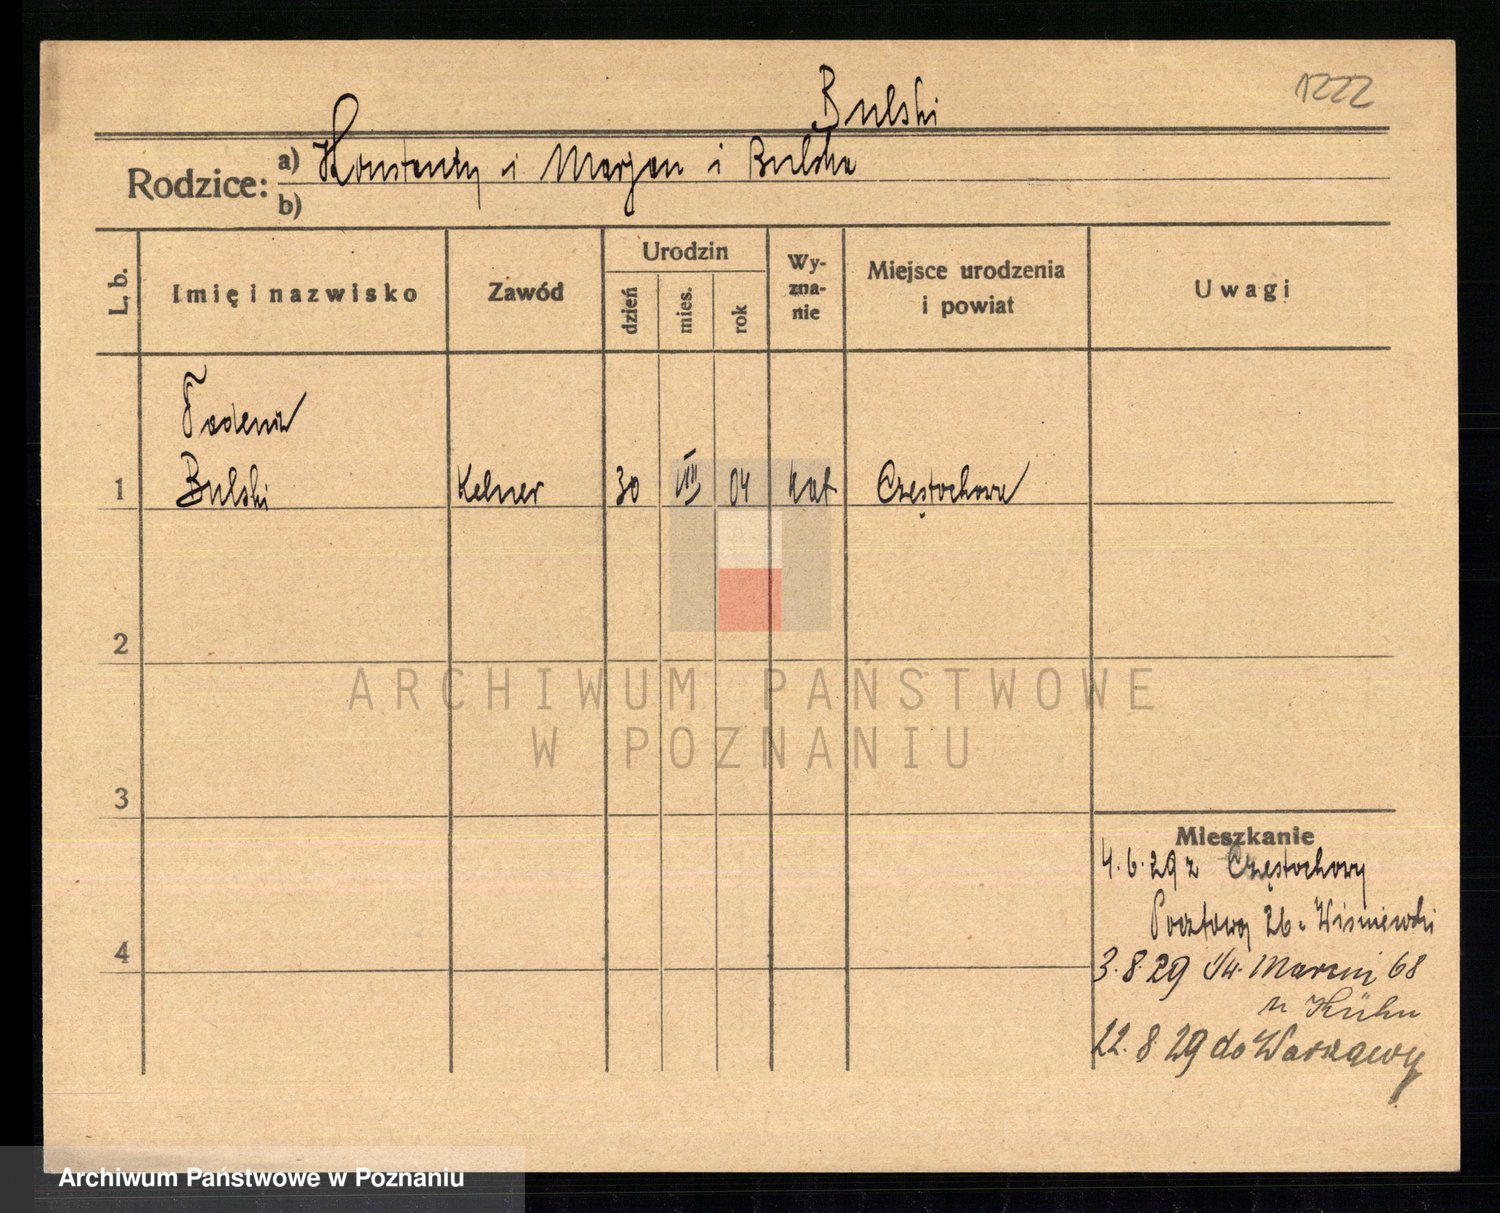 Bulski
1222
Rodzice:
a) Konstanty i Marjan i Bulska
b)
L. b.
Imię i nazwisko
Zawód
Urodzin
dzień
mies.
rok
Wy-
zna-
nie
Miejsce urodzenia
i powiat
Uwagi
1
Bulski
Kelner
30
VIII
04
kat
Częstochowa
2
ARCHIWUM PAŃSTWOWE
W POZNANIU
3
Mieszkanie
4.6.29 z Częstochowy
Pocztowa 26. Wiśniewski
4
3.8.29 Św. Marcin 68
u Kühn
22.8 29 do Warszawy
Archiwum Państwowe w Poznaniu